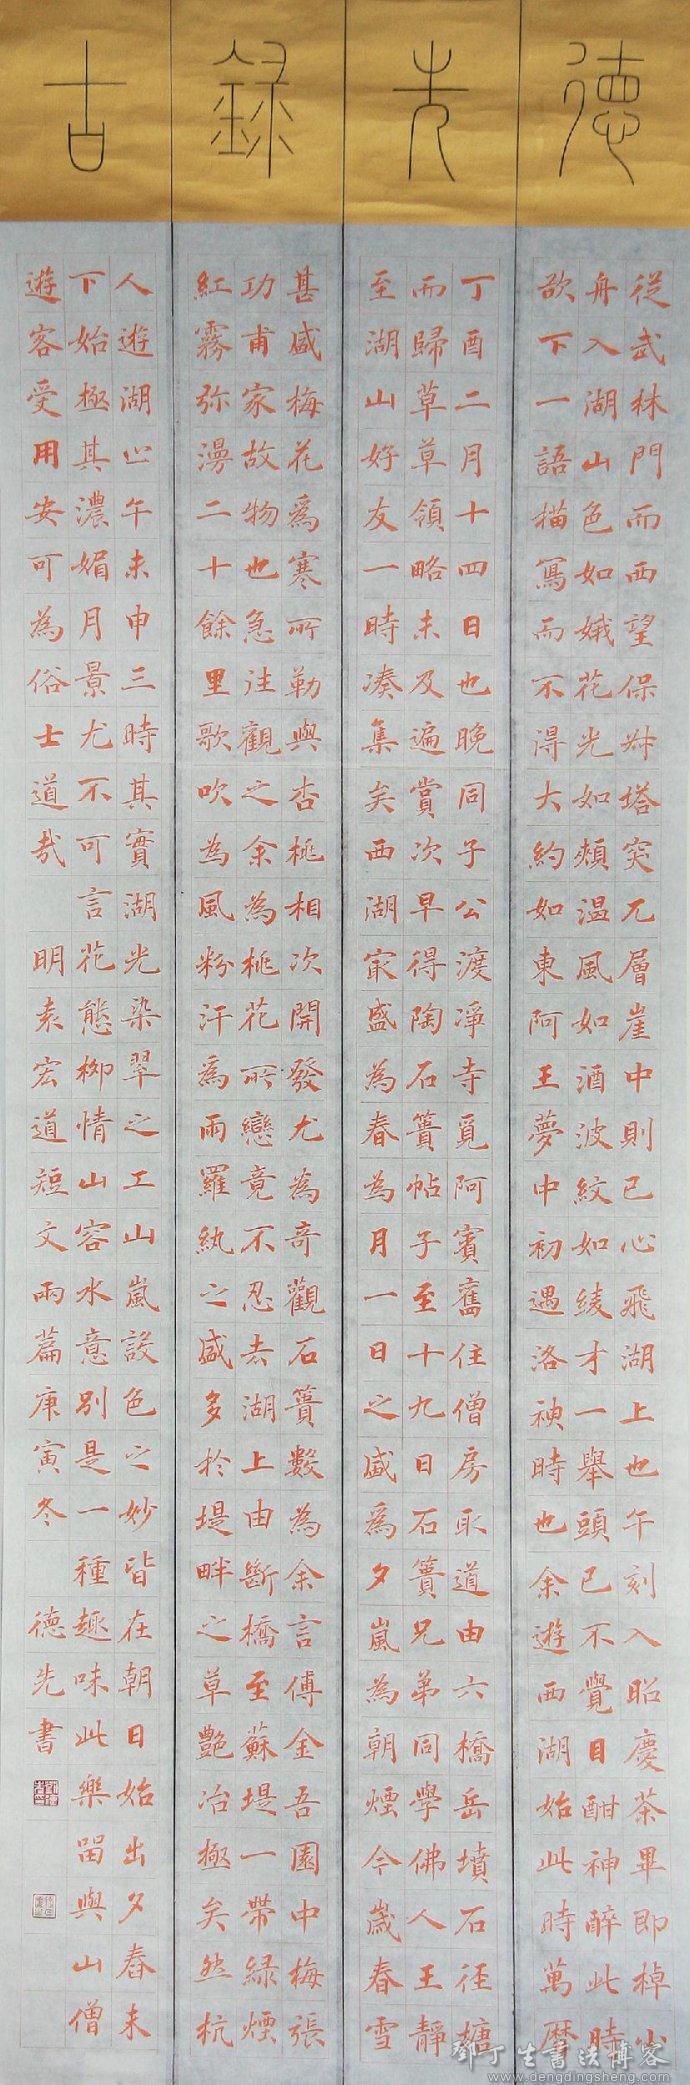 德先錄古
從武林門而西望保叔塔突兀層崖中則已心飛湖上也午刻入昭慶茶畢即棹小
舟入湖山色如娥花光如頰温風如酒波紋如綾才一舉頭已不覺目酣神醉此時
欲下一語描寫而不得大約如東阿王夢中初遇洛神時也余遊西湖始此時萬曆
丁酉二月十四日也晚同子公渡淨寺覓阿賓舊住僧房取道由六橋岳墳石徑塘
而歸草草領略未及遍賞次早得陶石簣帖子至十九日石簣兄弟同學佛人王靜
至湖山好友一時凑集矣西湖最盛為春為月一日之盛為夕嵐為朝煙今歲春雪
甚盛梅花為寒所勒與杏桃相次開發尤為奇觀石簣數為余言傅金吾園中梅張
功甫家故物也急往觀之余為桃花所戀竟不忍去湖上由斷橋至蘇堤一帶綠煙
紅霧弥漫二十餘里歌吹為風粉汗為雨羅紈之盛多於堤畔之草艷冶極矣然杭
人遊湖止午未申三時其實湖光染翠之工山嵐設色之妙皆在朝日始出夕舂未
下始極其濃媚月景尤不可言花態柳情山容水意別是一種趣味此樂留與山僧
遊客受用安可為俗士道哉 明袁宏道短文兩篇庚寅冬 德先書
鄧丁生書法博客
www.dengdingsheng.com